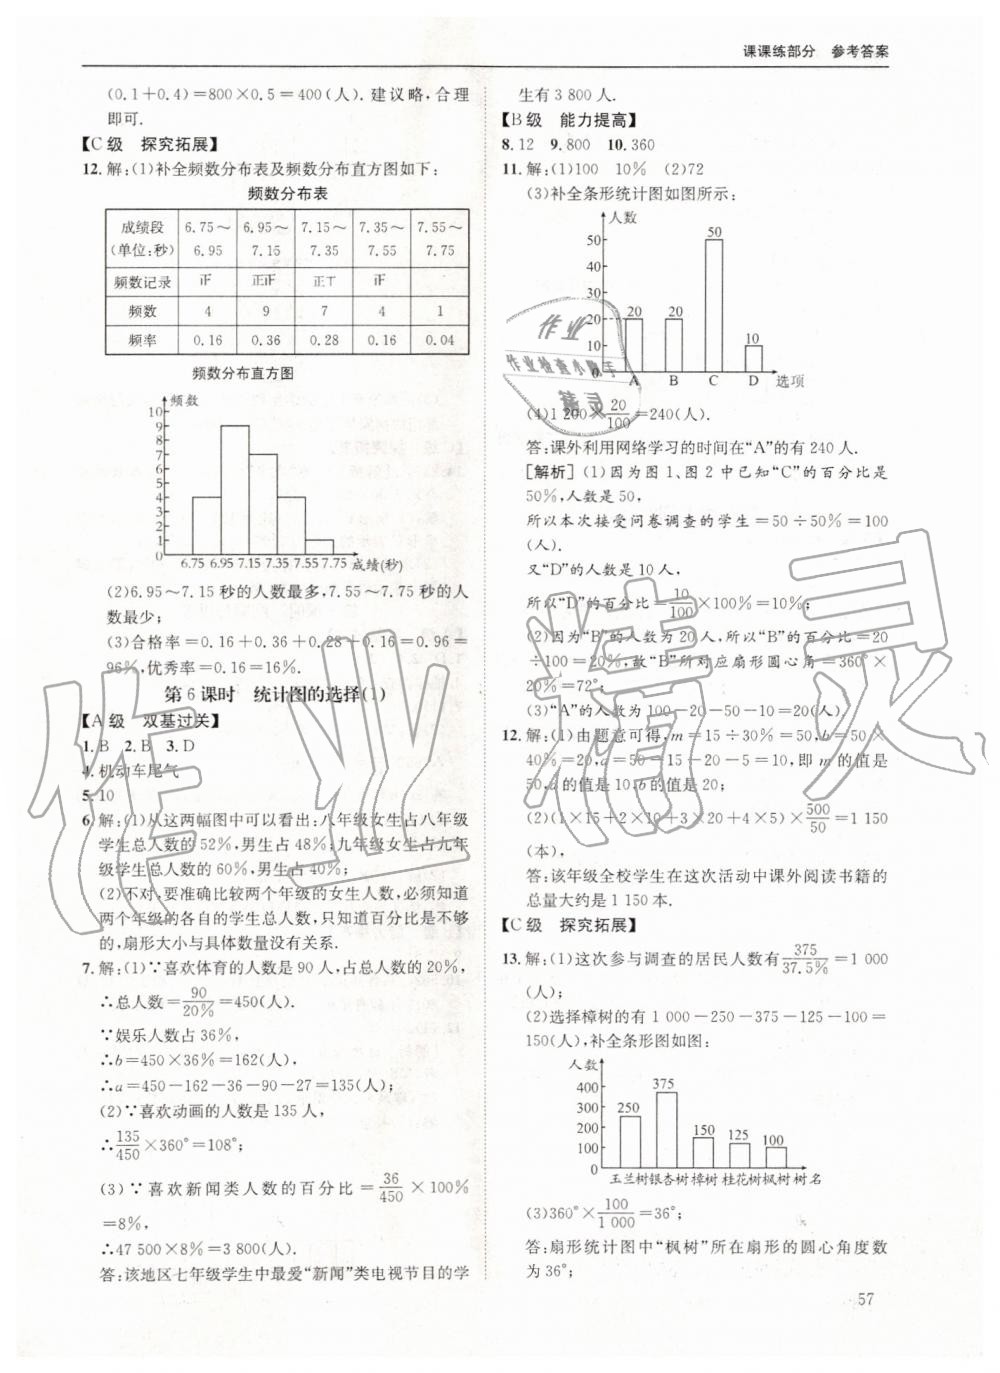 课课练部分 参考答案
(0.1+0.4)=800×0.5=400(人).建议略,合理
即可.
【C级 探究拓展】
12.解:(1)补全频数分布表及频数分布直方图如下:
频数分布表
成绩段(单位:秒) 6.75～6.95 6.95～7.15 7.15～7.35 7.35～7.55 7.55～7.75
频数记录
频数 4 9 7 4 1
频率 0.16 0.36 0.28 0.16 0.04
频数分布直方图
频数
10
9
8
7
6
5
4
3
2
1
0
6.75 6.95 7.15 7.35 7.55 7.75 成绩(秒)
(2)6.95～7.15 秒的人数最多,7.55～7.75 秒的人
数最少;
(3)合格率=0.16+0.36+0.28+0.16=0.96=
96%,优秀率=0.16=16%.
第 6 课时 统计图的选择(1)
【A级 双基过关】
1.B 2.B 3.D
4.机动车尾气
5.10
6.解:(1)从这两幅图中可以看出:八年级女生占八年级
学生总人数的 52%,男生占 48%;九年级女生占九年
级学生总人数的 60%,男生占 40%;
(2)不对,要准确比较两个年级的女生人数,必须知道
两个年级的各自的学生总人数,只知道百分比是不够
的,扇形大小与具体数量没有关系.
7.解:(1)∵喜欢体育的人数是 90 人,占总人数的 20%,
∴总人数=90/20%=450(人).
∵娱乐人数占 36%,
∴b=450×36%=162(人),
∴a=450-162-36-90-27=135(人);
(2)∵喜欢动画的人数是 135 人,
∴135/450×360°=108°;
(3)∵喜欢新闻类人数的百分比=36/450×100%
=8%,
∴47 500×8%=3 800(人).
答:该地区七年级学生中最爱“新闻”类电视节目的学
生有 3 800 人.
【B级 能力提高】
8.12 9.800 10.360
11.解:(1)100 10% (2)72
(3)补全条形统计图如图所示:
人数
50
40
30
20
10
0
20 20 50 10
A B C D 选项
(4)1 200×20/100=240(人).
答:课外利用网络学习的时间在“A”的有 240 人.
[解析] (1)因为图 1、图 2 中已知“C”的百分比是
50%,人数是 50,
所以本次接受问卷调查的学生=50÷50%=100
(人).
又“D”的人数是 10 人,
所以“D”的百分比=10/100×100%=10%;
(2)因为“B”的人数为 20 人,所以“B”的百分比=20
÷100=20%,故“B”所对应扇形圆心角=360°×
20%=72°;
(3)“A”的人数为 100-20-50-10=20(人)
12.解:(1)由题意可得,m=15÷30%=50,b=50×
40%=20,a=50-15-20-5=10,即 m 的值是
50,a 的值是 10,b 的值是 20;
(2)(1×15+2×10+3×20+4×5)×500/50=1 150
(本),
答:该年级全校学生在这次活动中课外阅读书籍的
总量大约是 1 150 本.
【C级 探究拓展】
13.解:(1)这次参与调查的居民人数有375/37.5%=1 000
(人);
(2)选择樟树的有 1 000-250-375-125-100=
150(人),补全条形图如图:
人数
400
300
200
100
0
250 375 150 125 100
玉兰树 银杏树 樟树 桂花树 枫树 树名
(3)360°×100/1 000=36°;
答:扇形统计图中“枫树”所在扇形的圆心角度数
为 36°;
57
作业
作业检查小助手
精灵
作业精灵